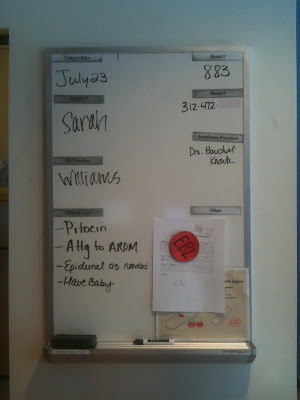 Today's Date
July 23
Room #
883
Phone #
312-472-
Sarah
Anesthesia Providers
Drs. Bauchat
OB Provider
Williams
Plan of Care
- Pitocin
- Attg to AROM
- Epidural as needed
- Have Baby
Other
EBL